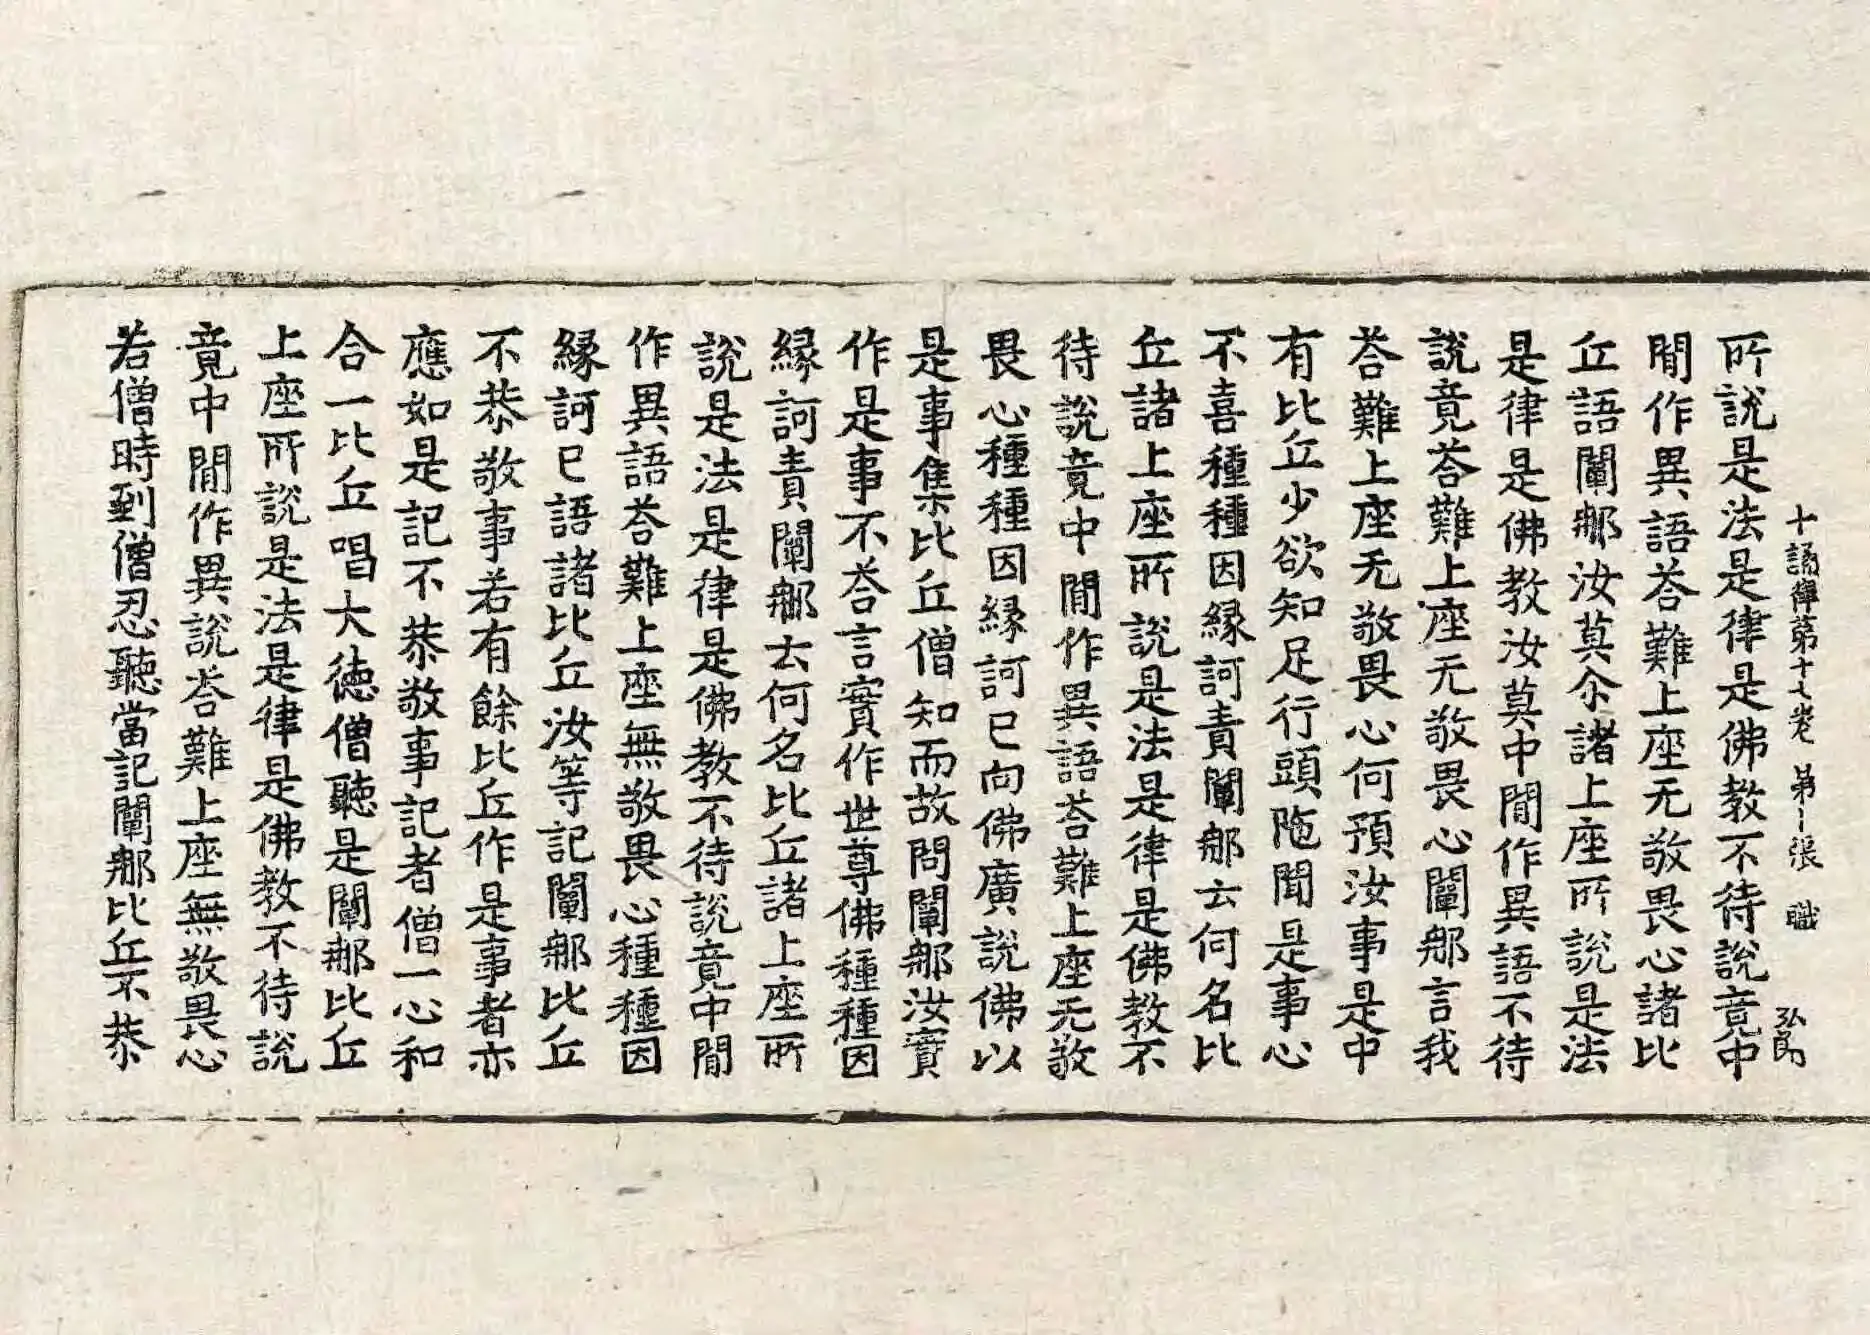 十誦律第十七卷 第一張 職 弘郎
所說是法是律是佛教不待說竟中
閒作異語荅難上座无敬畏心諸比
丘語闡那汝莫尒諸上座所說是法
是律是佛教汝莫中閒作異語不待
說竟荅難上座无敬畏心闡那言我
荅難上座无敬畏心何預汝事是中
有比丘少欲知足行頭陁聞是事心
不喜種種因縁訶責闡那云何名比
丘諸上座所說是法是律是佛教不
待說竟中閒作異語荅難上座无敬
畏心種種因縁訶已向佛廣說佛以
是事集比丘僧知而故問闡那汝實
作是事不荅言實作世尊佛種種因
縁訶責闡那云何名比丘諸上座所
說是法是律是佛教不待說竟中閒
作異語荅難上座無敬畏心種種因
縁訶已語諸比丘汝等記闡那比丘
不恭敬事若有餘比丘作是事者亦
應如是記不恭敬事記者僧一心和
合一比丘唱大徳僧聽是闡那比丘
上座所說是法是律是佛教不待說
竟中閒作異說荅難上座無敬畏心
若僧時到僧忍聽當記闡那比丘不恭